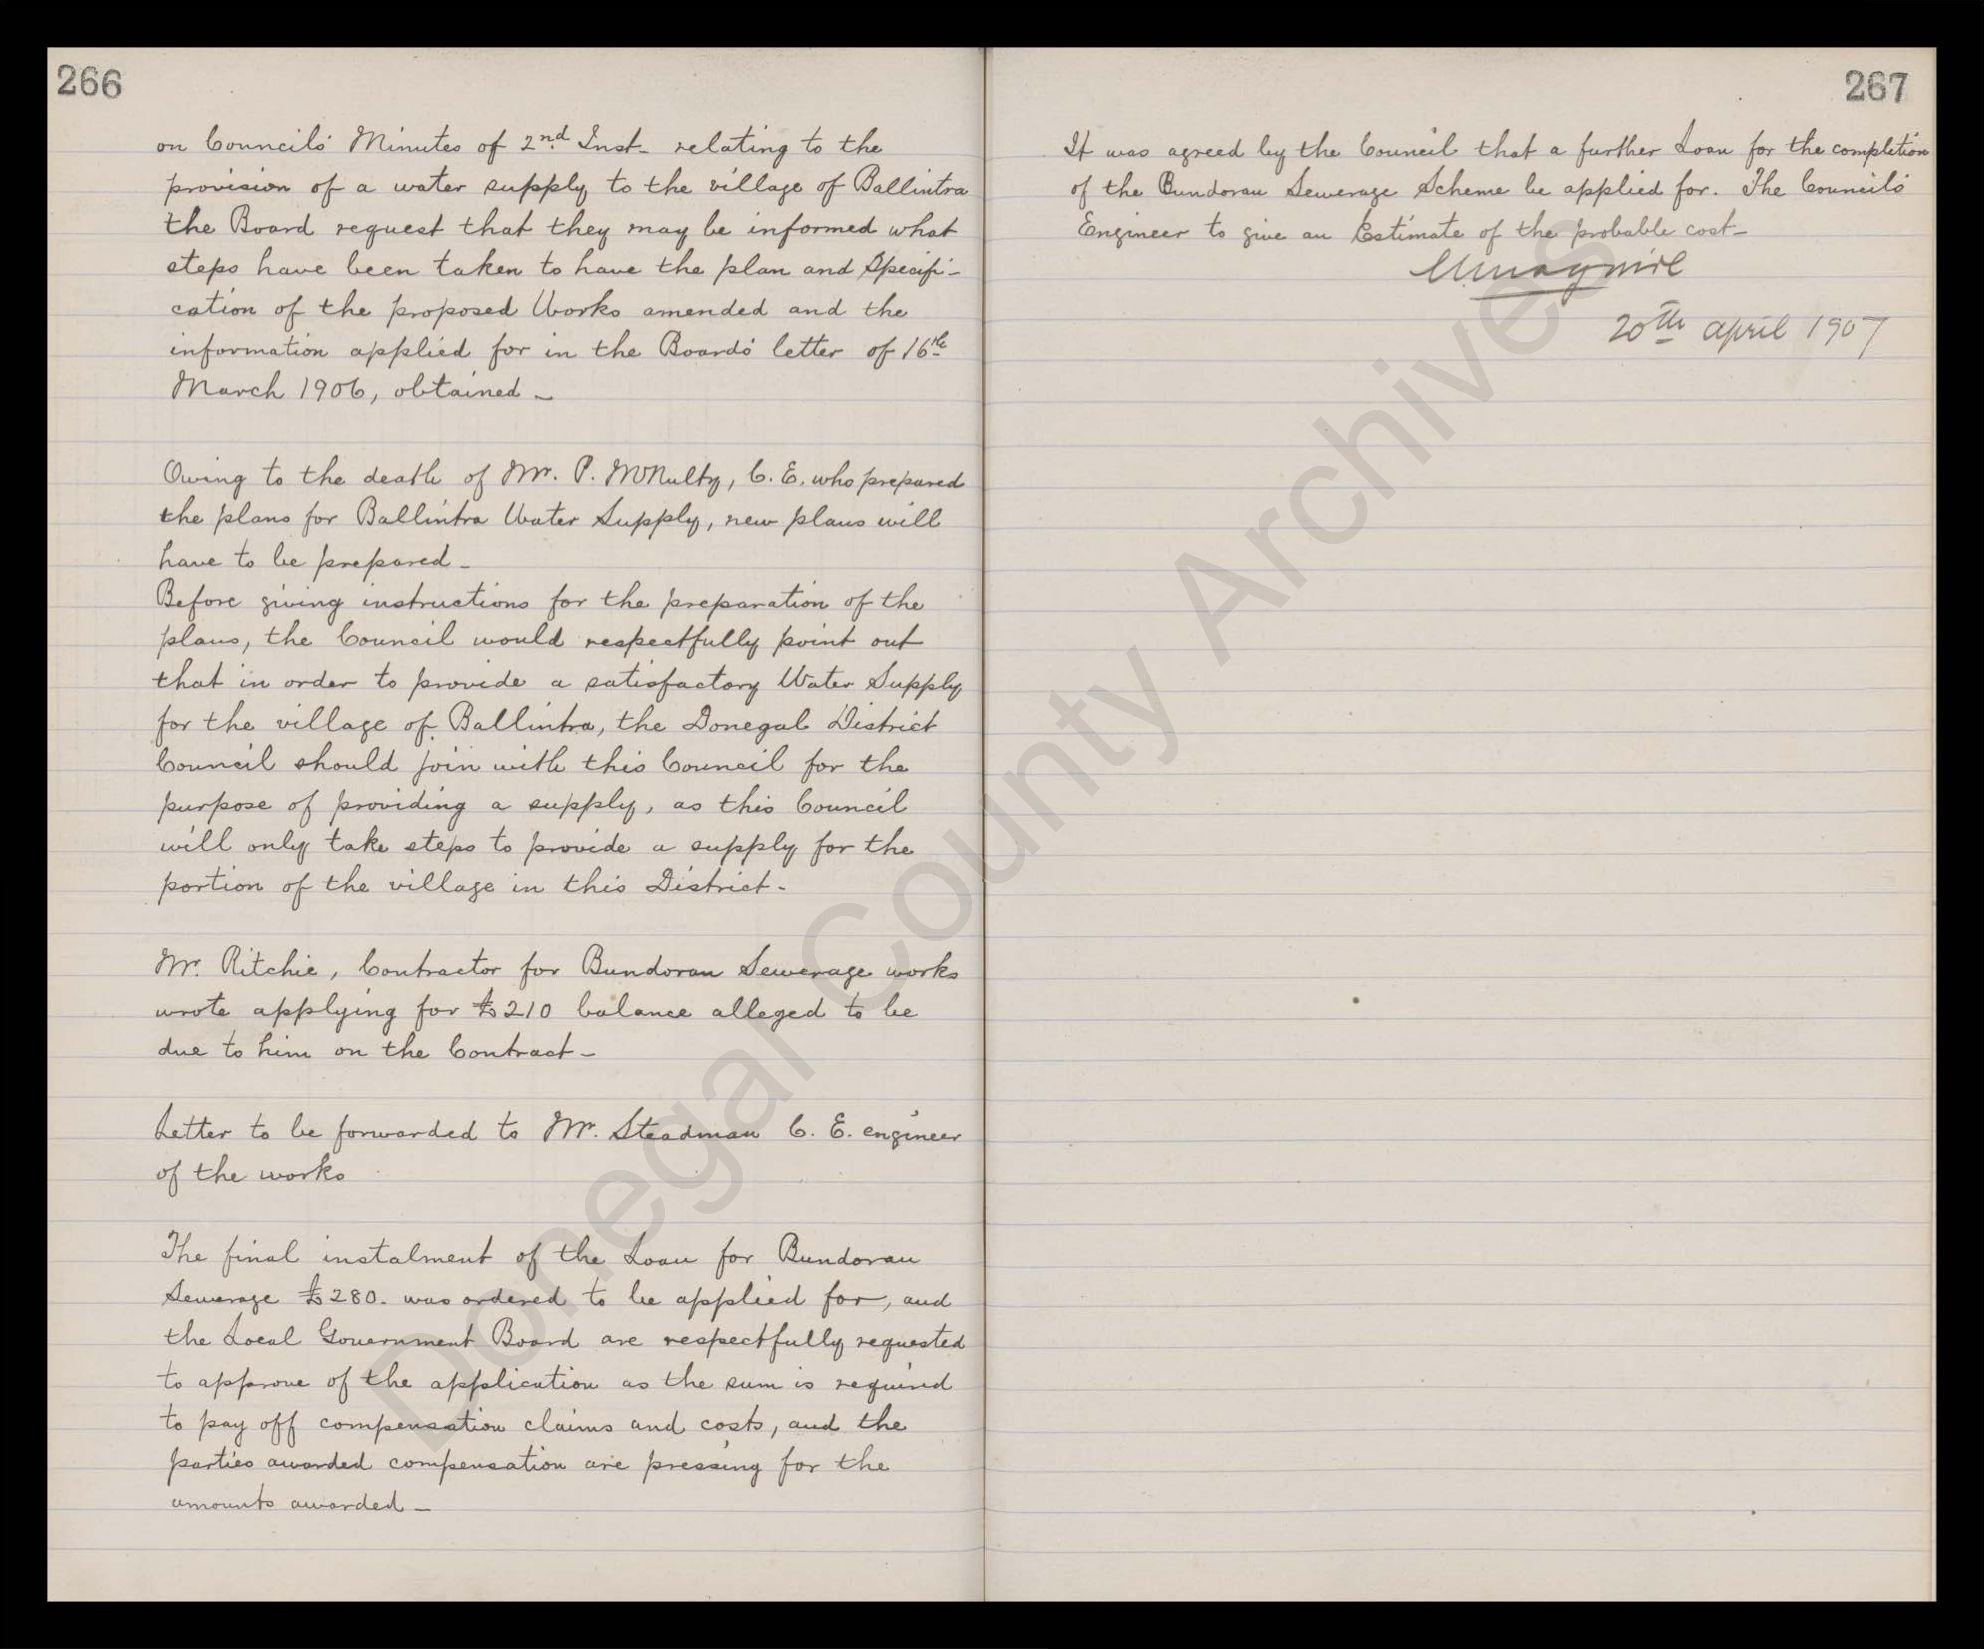 266
on Councils' Minutes of 2nd Inst- relating to the
provision of a water supply to the village of Ballintra
the Board request that they may be informed what
steps have been taken to have the plan and Specifi-
cation of the proposed Works amended and the
information applied for in the Boards' letter of 16th
March 1906, obtained -
Owing to the death of Mr. P. McNulty, C. E. who prepared
the plans for Ballintra Water Supply, new plans will
have to be prepared -
Before giving instructions for the preparation of the
plans, the Council would respectfully point out
that in order to provide a satisfactory Water Supply
for the village of Ballintra, the Donegal District
Council should join with this Council for the
purpose of providing a supply, as this Council
will only take steps to provide a supply for the
portion of the village in this District -
Mr. Ritchie, Contractor for Bundoran Sewerage works
wrote applying for £210 balance alleged to be
due to him on the Contract -
Letter to be forwarded to Mr. Steadman C. E. engineer
of the works
The final instalment of the Loan for Bundoran
Sewerage £280. was ordered to be applied for, and
the Local Government Board are respectfully requested
to approve of the application as the sum is required
to pay off compensation claims and costs, and the
parties awarded compensation are pressing for the
amounts awarded -
267
It was agreed by the Council that a further Loan for the completion
of the Bundoran Sewerage Scheme be applied for. The Councils'
Engineer to give an Estimate of the probable cost -
20th april 1907
Donegal County Archives